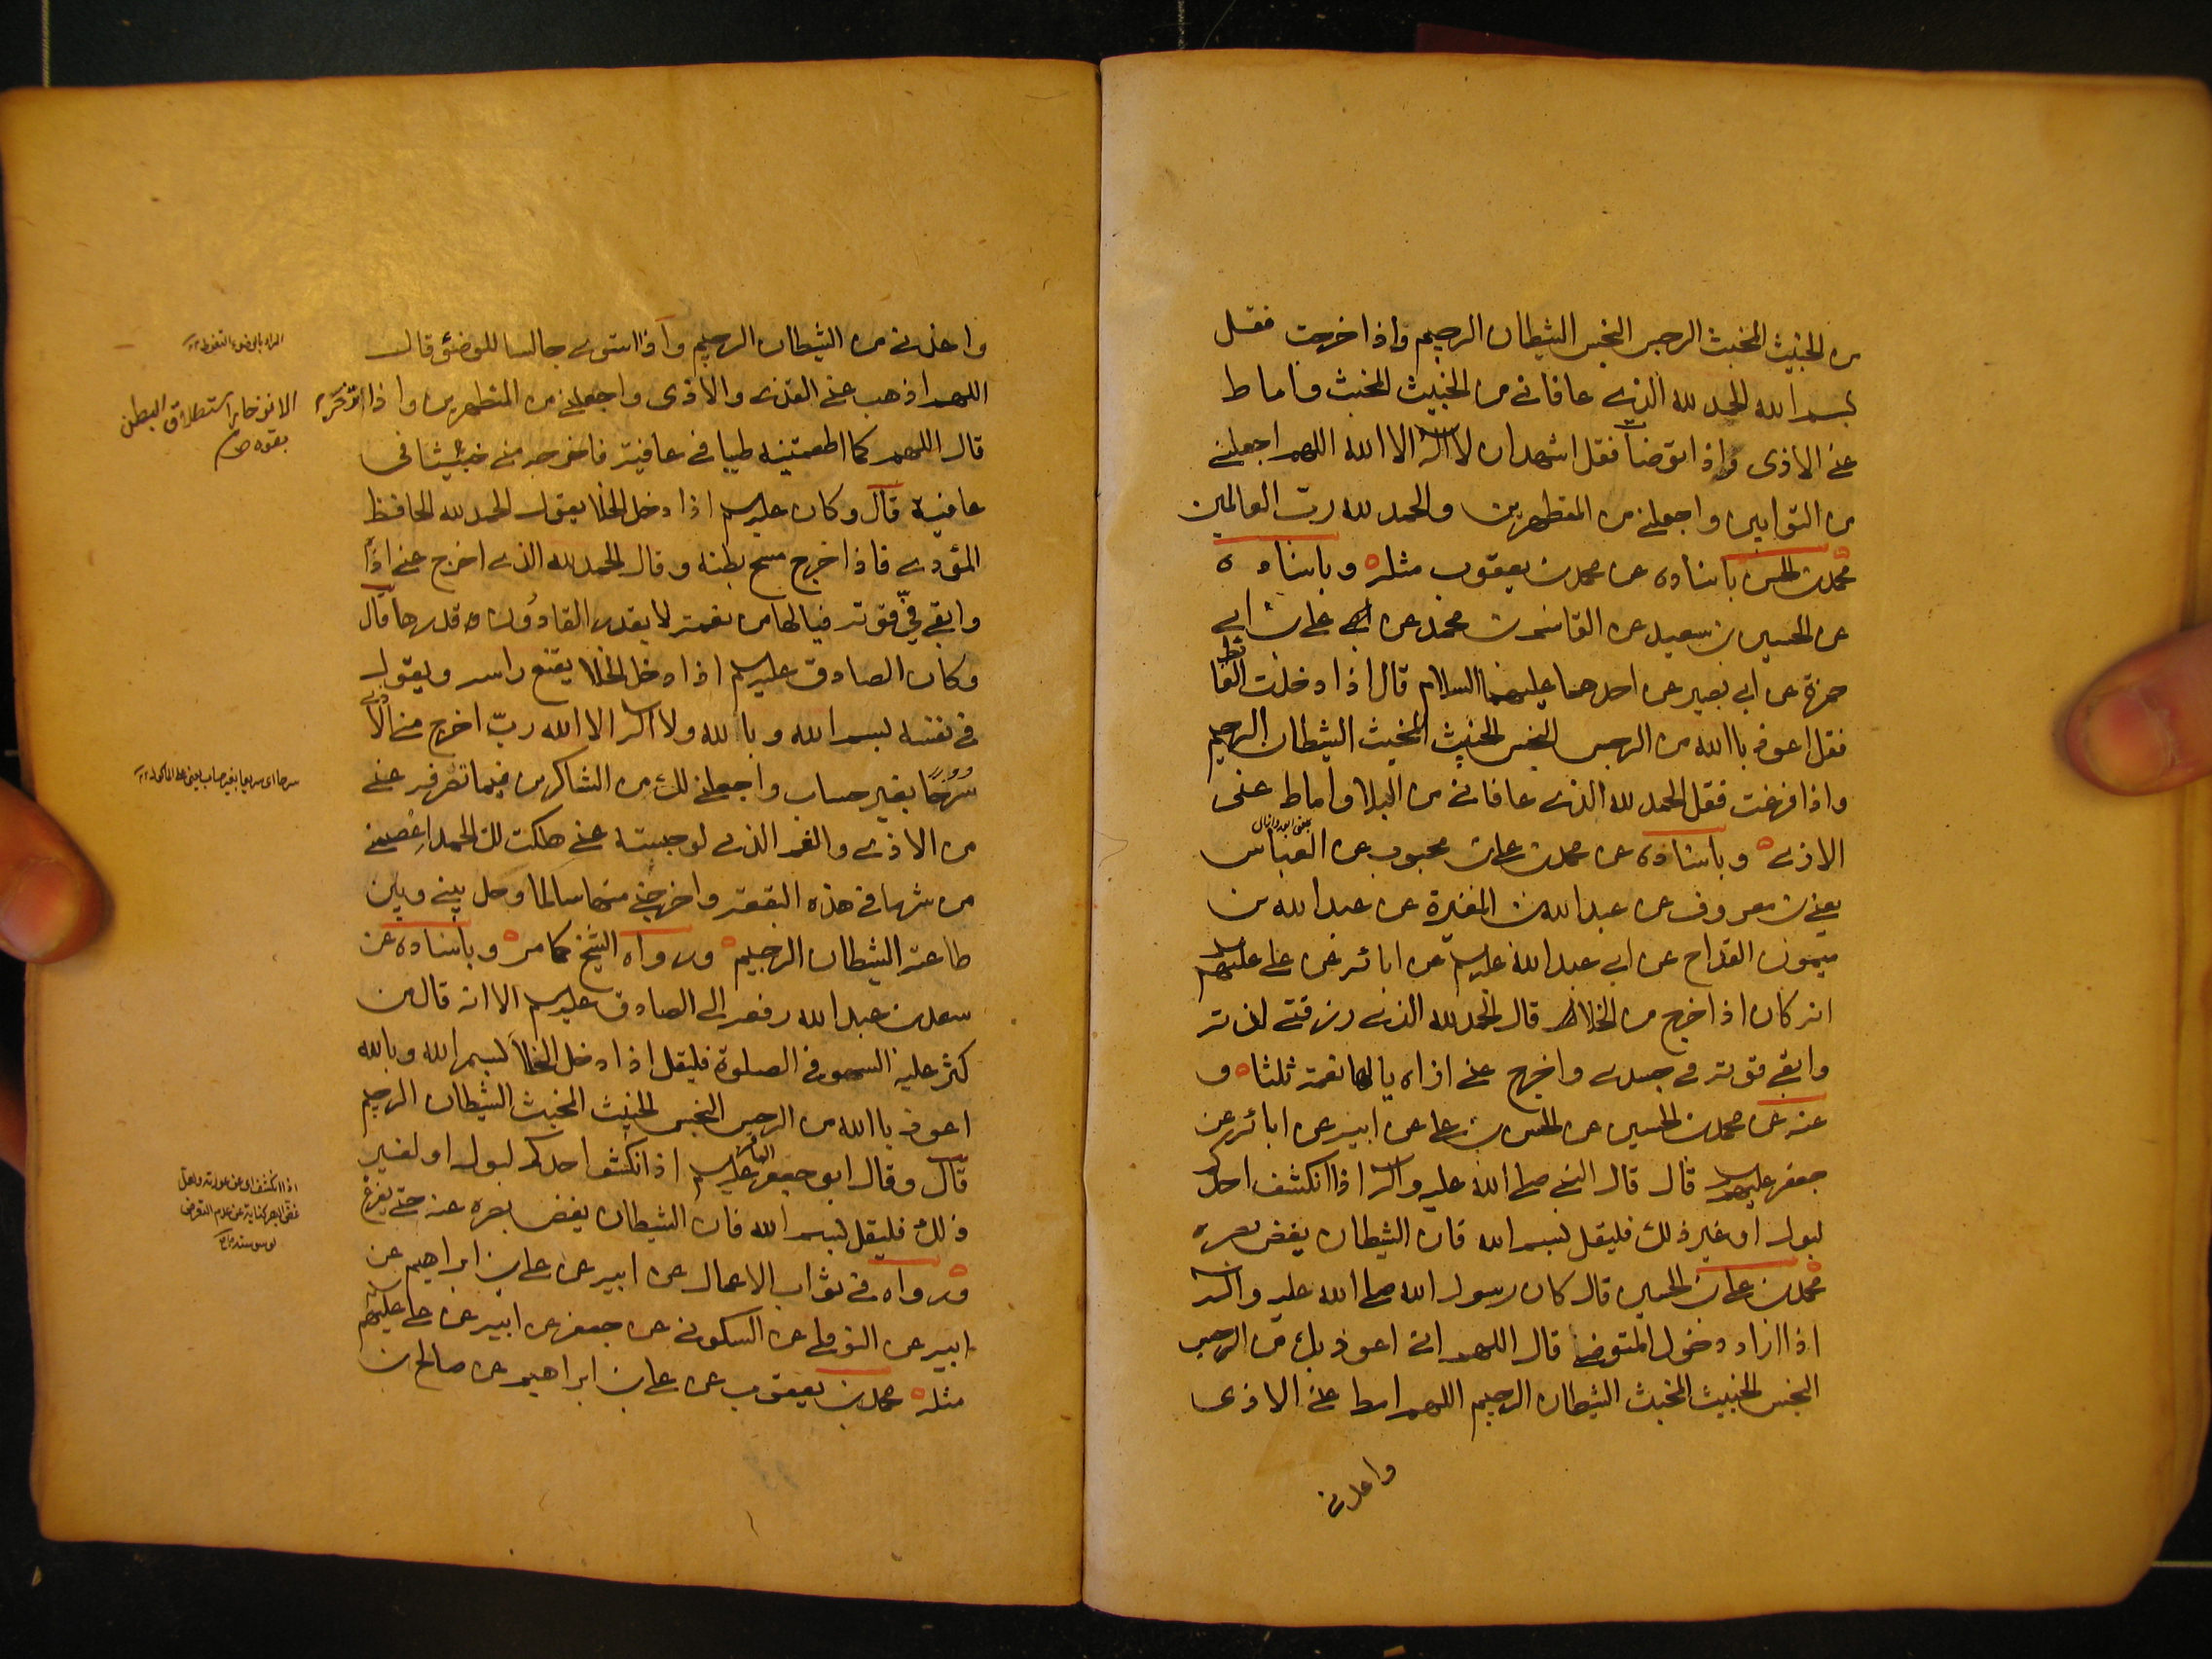 من الخبيث المخبث الرجس النجس الشيطان الرجيم واذا خرجت فقل
بسم الله الحمد لله الذي عافاني من الخبيث المخبث واماط
عني الاذى واذا توضأت فقل اشهد ان لا اله الا الله اللهم اجعلني
من التوابين واجعلني من المتطهرين والحمد لله رب العالمين
محمد بن الحسن باسناده عن محمد بن يعقوب مثله وباسناده
عن الحسين بن سعيد عن القاسم بن محمد عن علي بن ابي
حمزة عن ابي بصير عن احدهما عليهما السلام قال اذا دخلت الغائط
فقل اعوذ باالله من الرجس النجس الخبيث المخبث الشيطان الرجيم
واذا فرغت فقل الحمد لله الذي عافاني من البلا واماط عني
الاذي وباسناده عن محمد بن علي بن محبوب عن العباس
يعني بن معروف عن عبد الله بن المغيرة عن عبد الله بن
ميمون القداح عن ابي عبد الله عليه السلم عن ابائه عن علي عليهم
انه كان اذا خرج من الخلا قال الحمد لله الذي رزقني لذته
وابقى قوته في جسدي واخرج عني اذاه يالها نعمة ثلثا و
عنه عن محمد بن الحسين عن الحسن بن علي عن ابيه عن ابائه عن
جعفر عليهم قال قال النبي صلى الله عليه واله اذا انكشف احدكم
لبول او غير ذلك فليقل بسم الله فان الشيطان يغض بصره
محمد بن علي بن الحسين قال كان رسول الله صلى الله عليه واله
اذا اراد دخول المتوضأ قال اللهم اني اعوذ بك من الرجس
النجس الخبيث المخبث الشيطان الرجيم اللهم امط عني الاذى
واعذني
واعذني من الشيطان الرجيم واذا استوى جالسا للوضوء قال
اللهم اذهب عني القذى والاذى واجعلني من المتطهرين واذا تزحر
قال اللهم كما اطعمتنيه طيبا في عافية فاخرجه مني خبيثا في
عافية قال وكان عليه السلم اذا دخل الخلا يقول الحمد لله الحافظ
المؤدي فاذا خرج مسح بطنه وقال الحمد لله الذي اخرج عني اذاه
وابقى في قوته فيالها من نعمة لا يقدر القادرون قدرها قال
وكان الصادق عليه السلم اذا دخل الخلا يقنع راسه ويقول
في نفسه بسم الله وباالله ولا اله الا الله رب اخرج مني الاذى
سرحا بغير حساب واجعلني لك من الشاكرين فيما تصرفه عني
من الاذى والغم الذي لو حبسته عني هلكت لك الحمد اعصمني
من شر ما في هذه البقعة واخرجني منها سالما وحل بيني وبين
طاعة الشيطان الرجيم ورواه الشيخ كما مر وباسناده عن
سعد بن عبد الله رفعه الى الصادق عليه السلم الا انه قال من
كثر عليه السهو في الصلوة فليقل اذا دخل الخلا بسم الله وبالله
اعوذ باالله من الرجس النجس الخبيث المخبث الشيطان الرجيم
قال وقال ابو جعفر الباقر عليه السلم اذا انكشف احدكم لبول او لغير
ذلك فليقل بسم الله فان الشيطان يغض بصره عنه حتى يفرغ
ورواه في ثواب الاعمال عن ابيه عن علي بن ابراهيم عن
ابيه عن النوفلي عن السكوني عن جعفر عن ابيه عن علي عليهم
مثله محمد بن يعقوب عن علي بن ابراهيم عن صالح بن
المراد بالوضوء التغوط
استطلاق البطن
سرحا اى سريعا بغير حساب
اذا انكشف اى عن عورته
غض البصر كناية عن عدم التعرض
لوسوسته